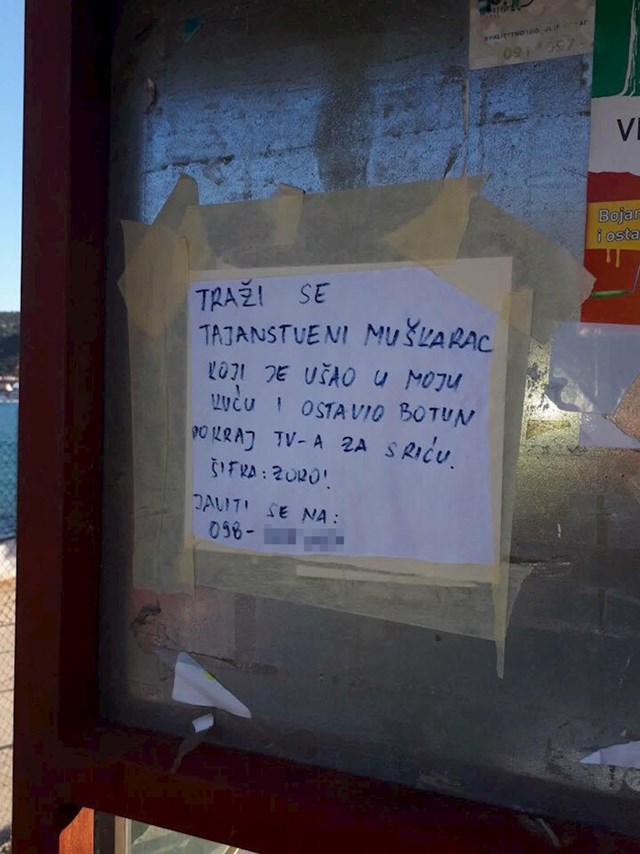 091 597
VI
Bojan
i osta
TRAŽI SE
TAJANSTVENI MUŠKARAC
KOJI JE UŠAO U MOJU
KUĆU I OSTAVIO BOTUN
POKRAJ TV-A ZA SRIĆU.
ŠIFRA: ZORO!
JAVITI SE NA:
098-